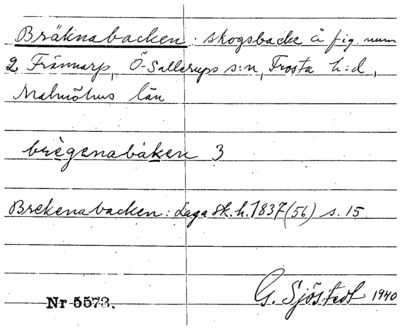 Bräknabacken: skogsbacke å fig. num
2 Frännarp, Ö. Sallerups s:n, Frosta h:d,
Malmöhus län
brègenabàken 3
Brekenabacken: Laga sk. h. 1837 (56) s. 15
Nr 5573.
G. Sjöstedt 1940